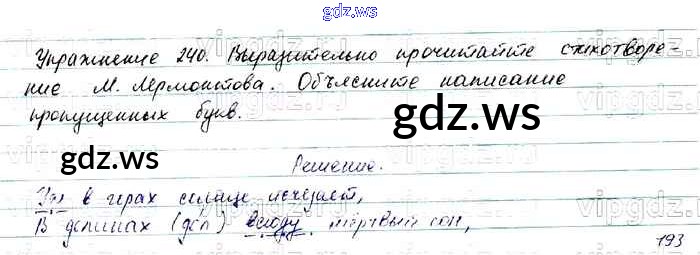 gdz.ws
Упражнение 240. Выразительно прочитайте стихотворе-
ние М. Лермонтова. Объясните написание
пропущенных букв.
gdz.ws
Решение.
в горах солнце исчезает,
В долинах (дол) всюду мёртвый сон,
193
gdz.ws